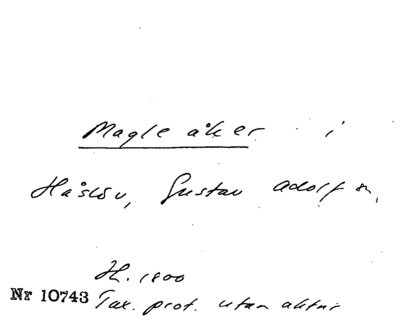 Magle åker i
Håslöv, Gustav Adolf sn,
H. 1800
Nr 10743 Tax. prot. utan aktnr